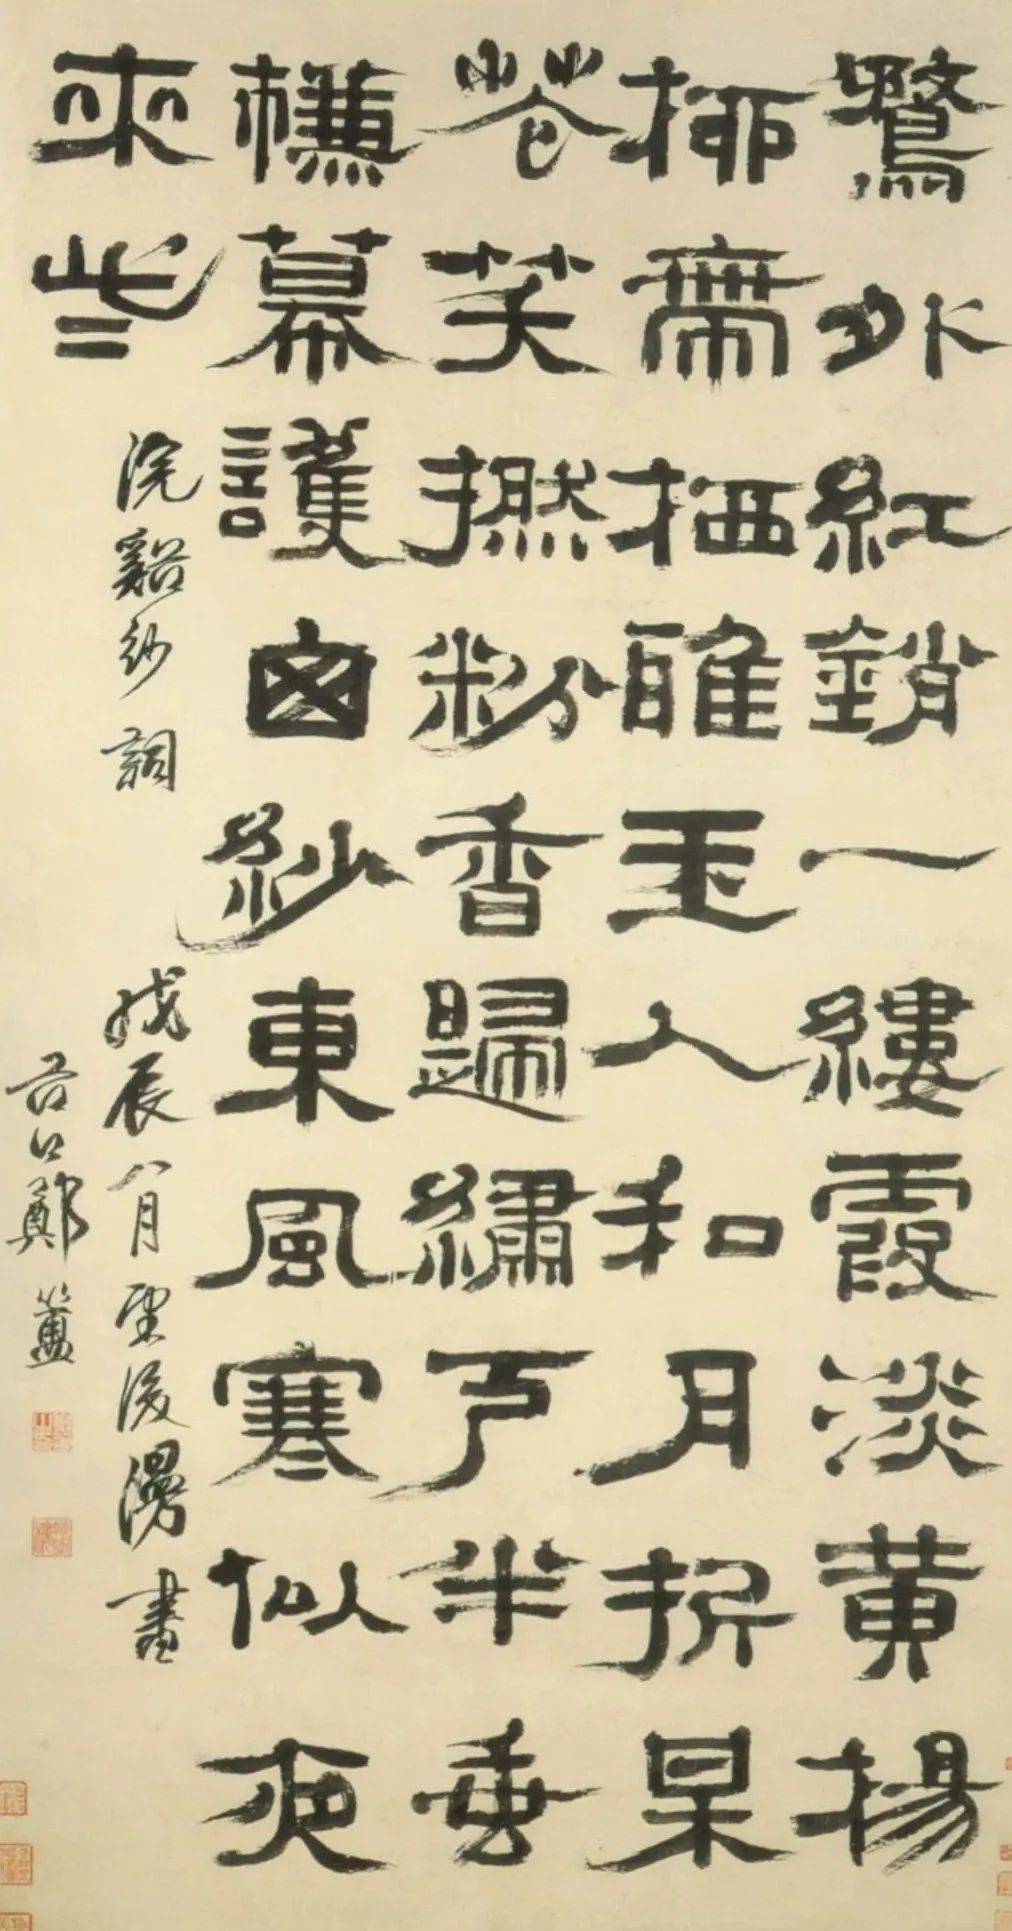 鶩外紅銷一縷霞淡黃楊
柳帶栖雅玉人和月折呆
花笑撚粉香歸繡戶半垂
橅幕護窗紗東風寒似夜
來些
浣谿紗詞 戊辰八月望後漫書
谷口鄭簠